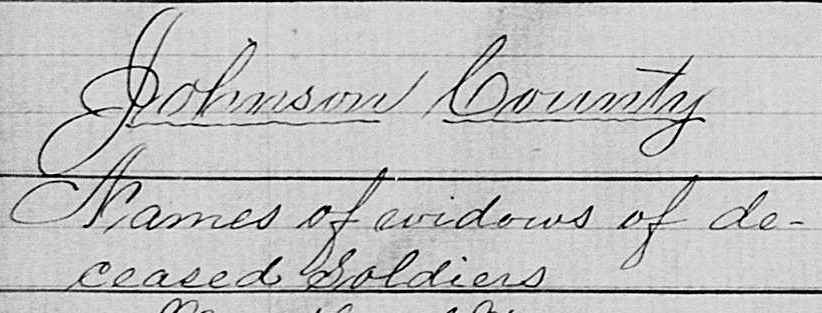 Johnson County
Names of widows of de-
ceased Soldiers